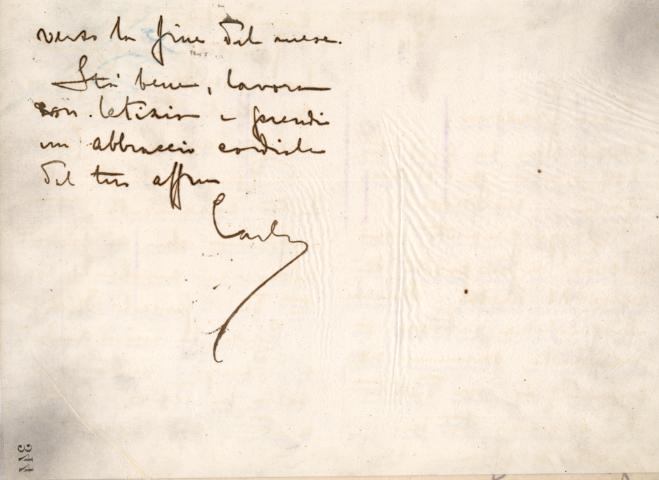 verso la fine del mese.
Stai bene, lavora
con letizia e prendi
un abbraccio cordiale
del tuo affmo
Carlo
344